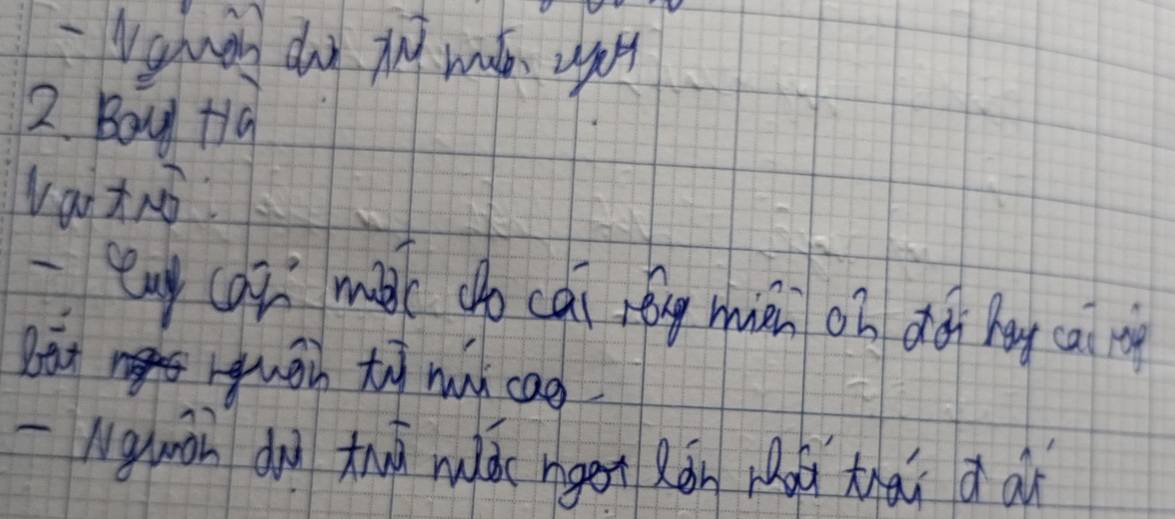 - Nguồn dự trữ nước ngọt
2. Băng Hà
Vai trò:
- Cung cấp nước cho các sông miền ôn đới hay các sông
bắt nguồn từ núi cao
- Nguồn dự trữ nước ngọt lớn nhất trái đất